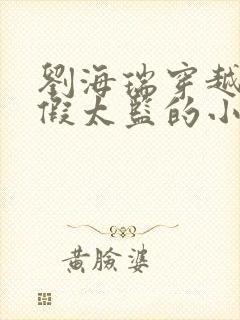 劉海瑞穿越
假太監的小
黃臉婆